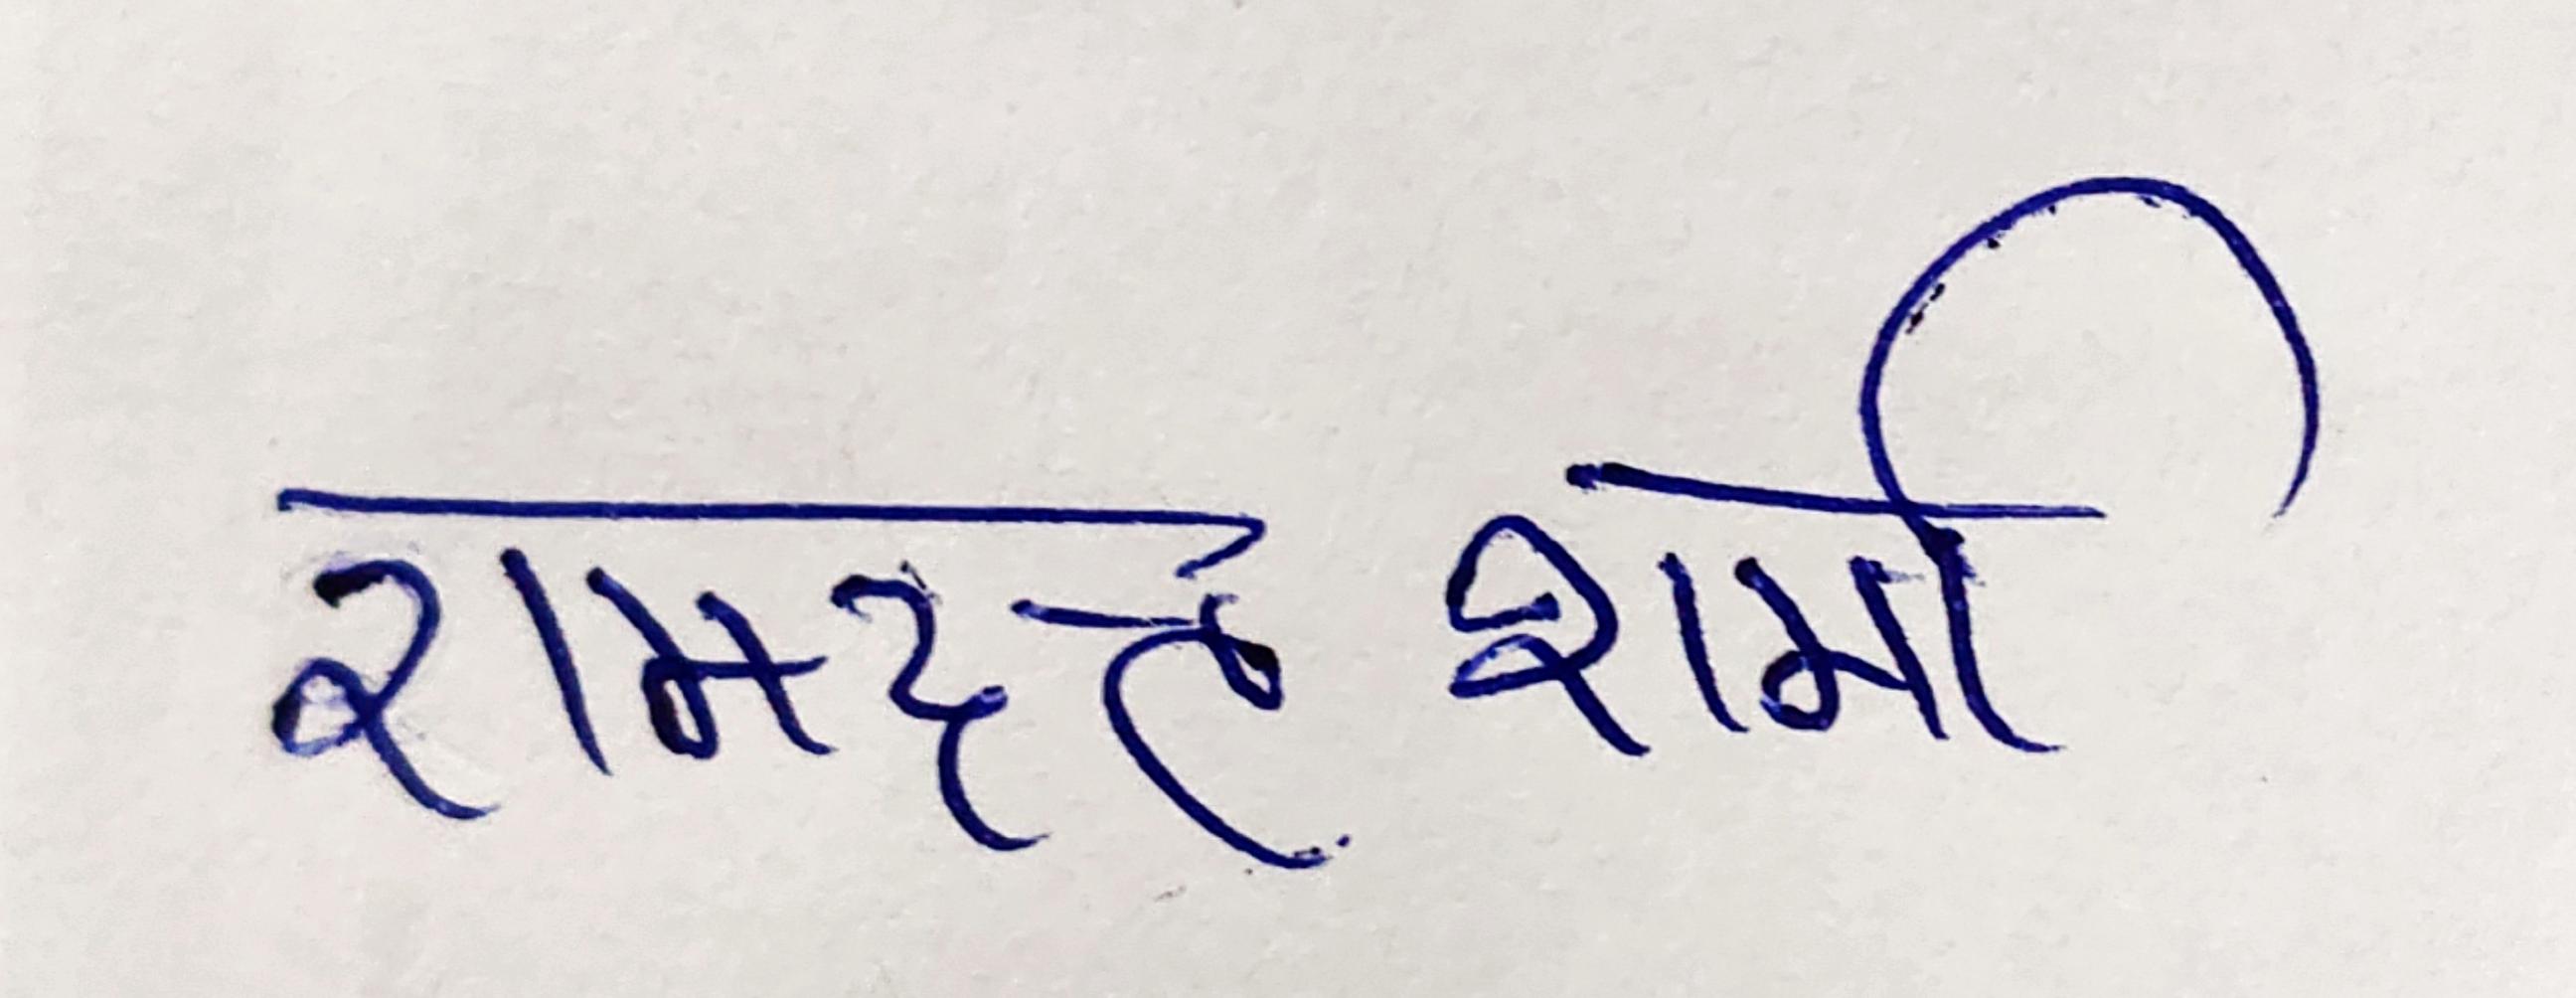 रामदत्त शर्मा